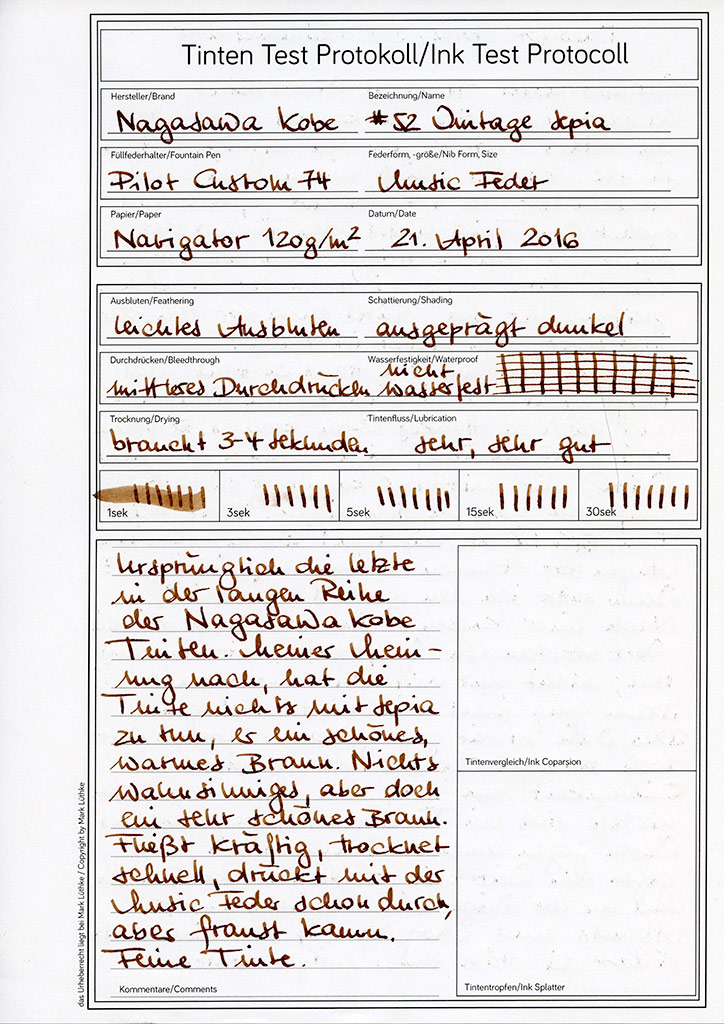 Tinten Test Protokoll/Ink Test Protocoll
Hersteller/Brand
Nagasawa Kobe
Bezeichnung/Name
#52 Vintage Sepia
Füllfederhalter/Fountain Pen
Pilot Custom 74
Federform, -größe/Nib Form, Size
Music Feder
Papier/Paper
Navigator 120g/m²
Datum/Date
21. April 2016
Ausbluten/Feathering
leichtes Ausbluten
Schattierung/Shading
ausgeprägt dunkel
Durchdrücken/Bleedthrough
mittleres Durchdrücken
Wasserfestigkeit/Waterproof
nicht
wasserfest
Trocknung/Drying
braucht 3-4 Sekunden
Tintenfluss/Lubrication
sehr, sehr gut
1sek 3sek 5sek 15sek 30sek
Ursprünglich die letzte
in der langen Reihe
der Nagasawa Kobe
Tinten. Meiner Mein-
ung nach, hat die
Tinte nichts mit Sepia
zu tun, er ein schönes,
warmes Braun. Nichts
wahnsinniges, aber doch
ein sehr schönes Braun.
Fließt kräftig, trocknet
schnell, drückt mit der
Music Feder schon durch,
aber franst kaum.
Feine Tinte.
Kommentare/Comments
Tintenvergleich/Ink Coparsion
Tintentropfen/Ink Splatter
das Urheberrecht liegt bei Mark Lüthke / Copyright by Mark Lüthke